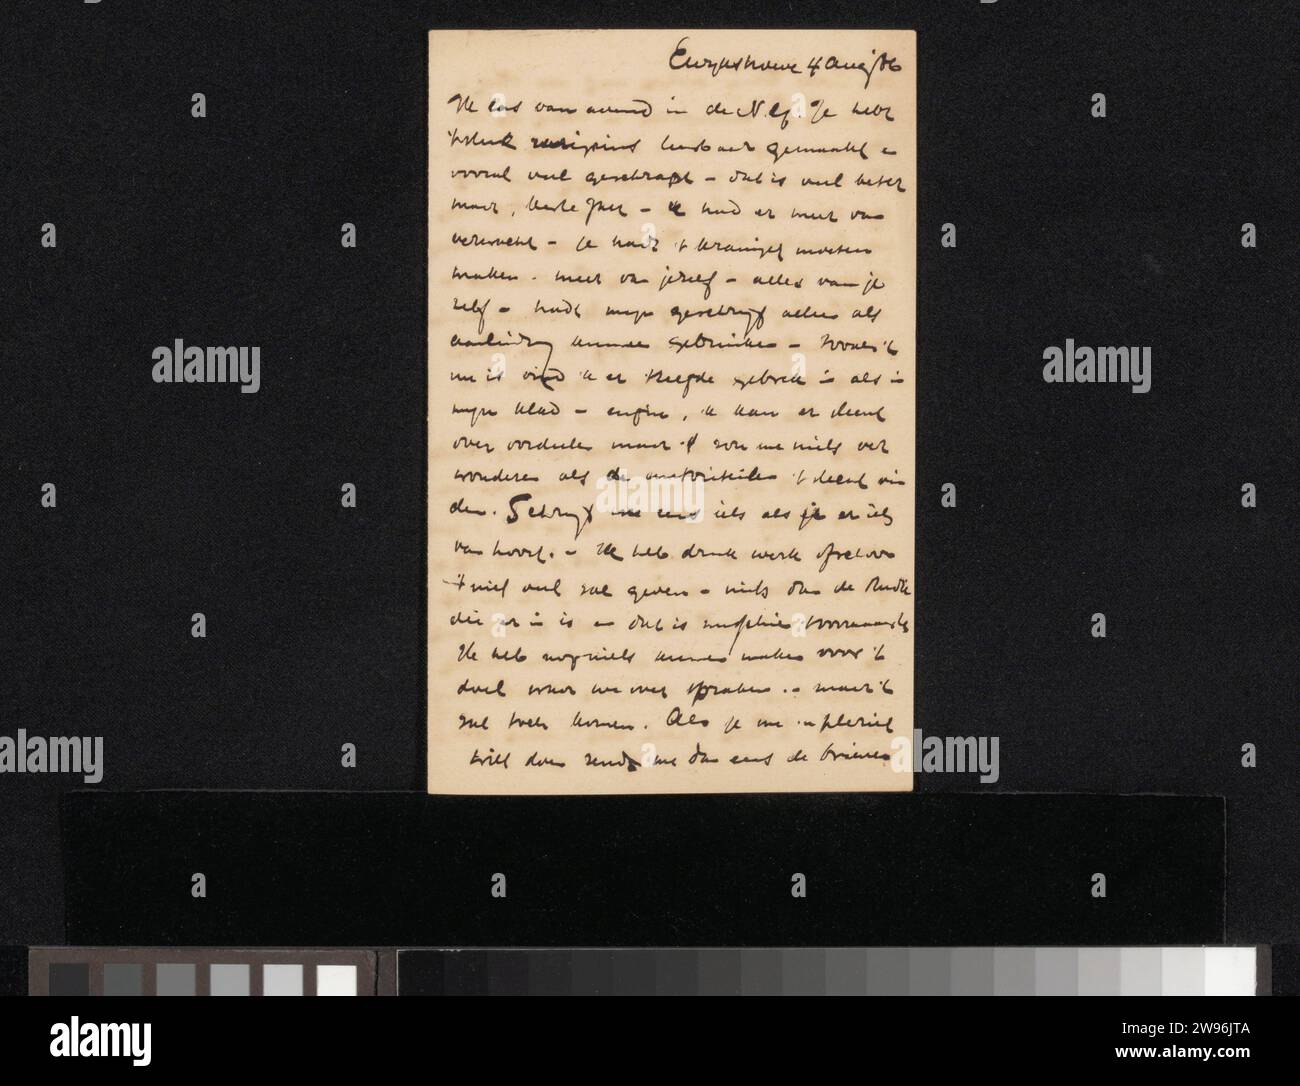 4 Aug/86
Ik las van avond in de N.G. Je hebt
leesbaar gemaakt en
vooral veel geschrapt - dat is veel beter
maar, beste Jac - ik had er meer van
verwacht - je hadt 't moeten
maken - meer van jezelf - alles van je
zelf - hadt mijn geschrijf alleen als
aanleiding kunnen gebruiken - Zooals 't
nu is vind ik er 't zelfde gebrek in als in
mijn klad - enfin, ik kan er slecht
over oordeelen maar 't zou me niets ver
wonderen als de autoriteiten 't slecht vin
den. Schrijf me eens iets als je er iets
van hoort. - Ik heb druk werk ofschoon
't niet veel zal geven - niets dan de studie
die er in is en dat is
Ik heb nog niets kunnen maken voor 't
doel waar we over spraken. - maar 't
zal toch komen. Als je me 'n plezier
wilt doen zendt me dan eens de
alamy
alamy
alamy
Image ID: 2W96JTA
www.alamy.com